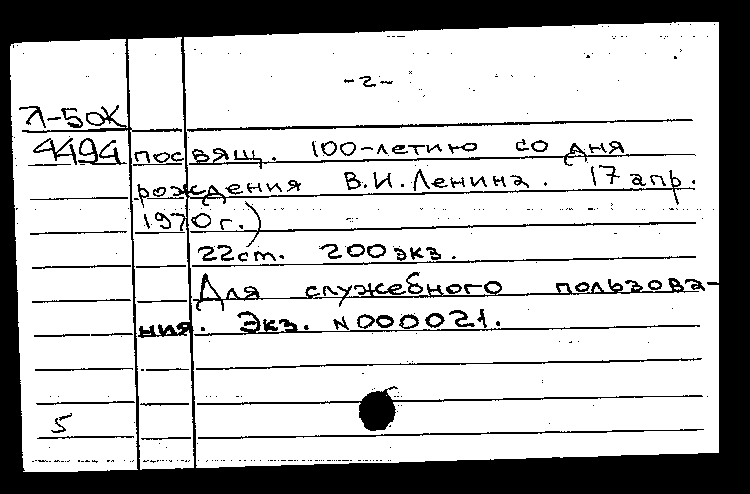 -2-
Л-50К
4494 посвящ. 100-летию со дня
рождения В.И.Ленина. 17 апр.
1970 г.)
22 ст. 200 экз.
Для служебного пользова-
ния. Экз. N000021.
5